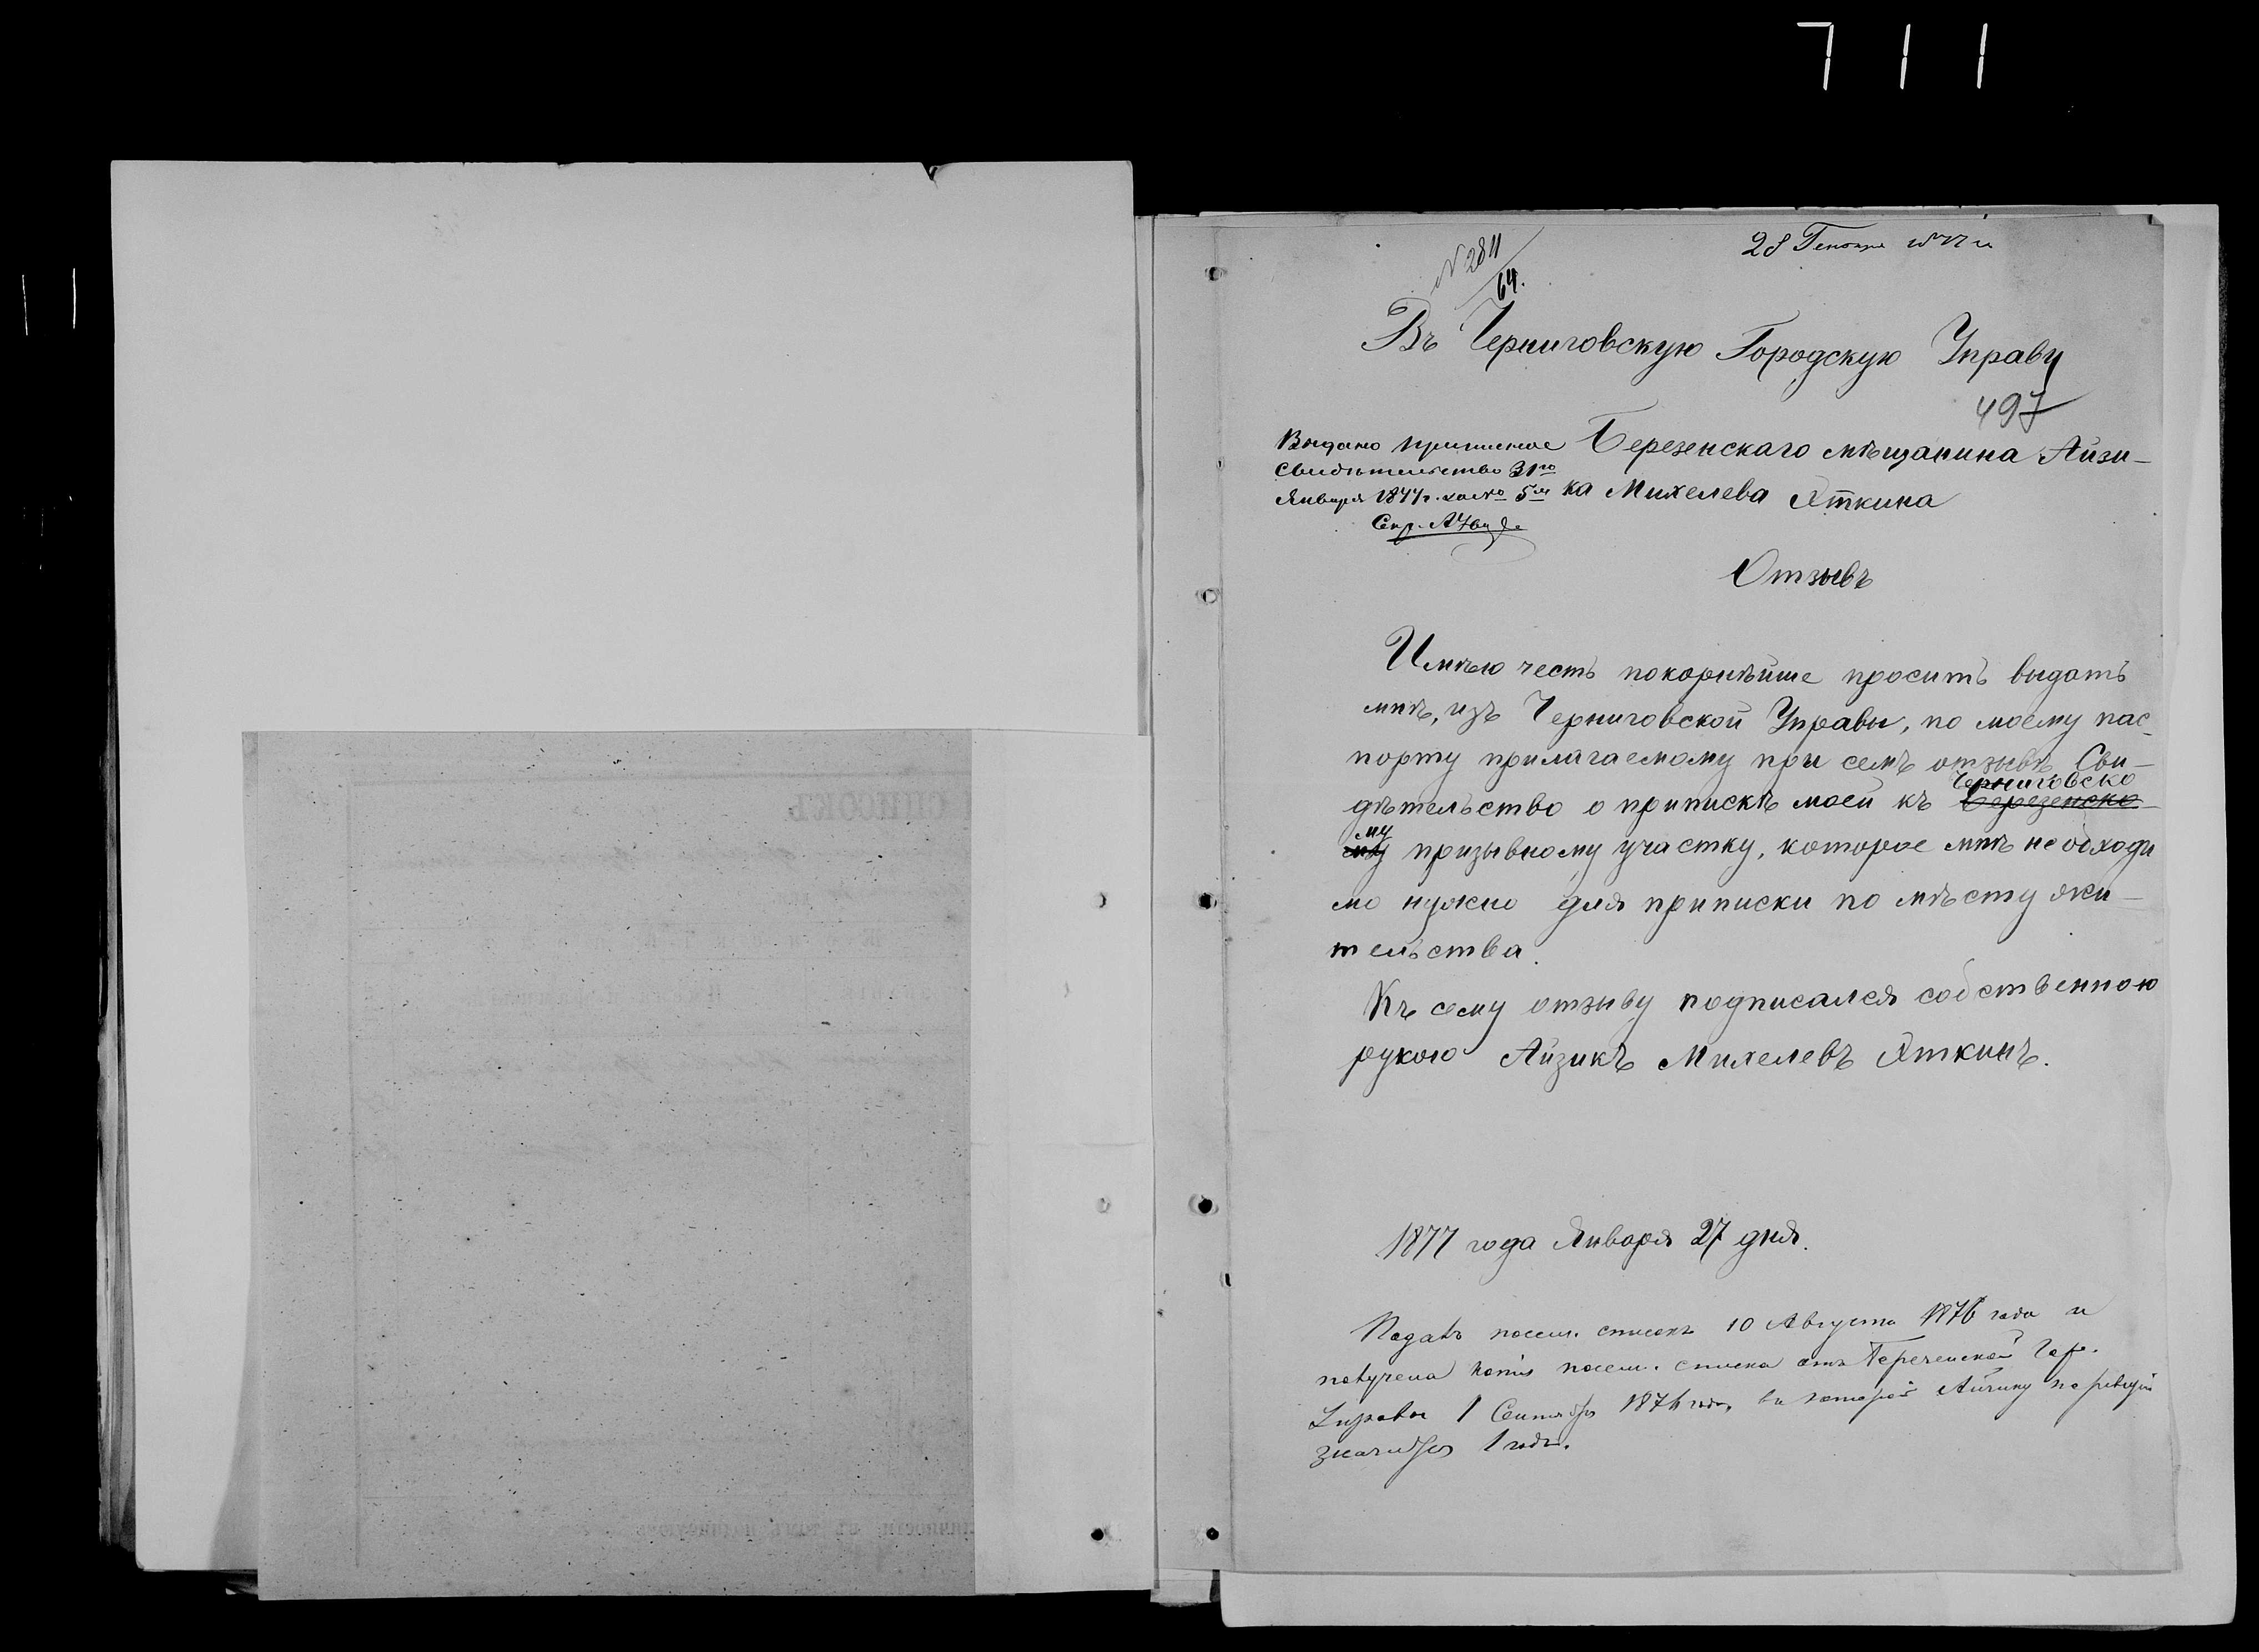 711
28 Генваря 1877 г
N 2811
64.
Въ Черниговскую Городскую Управу
497
Выдано приписное
свидѣтельство 31го
Января 1877 г. за № 5м
Березенскаго мѣщанина Айзи-
ка Михелева Яткина
Отзывъ
Имѣю честь покорнѣйше просить выдать
мнѣ, изъ Черниговской Управы, по моему пас-
порту прилагаемому при семъ отзывѣ Сви-
дѣтельство о припискѣ моей къ Березенско-
Черниговско
му
му призывному участку, которое мнѣ необходи
мо нужно для приписки по мѣсту жи-
тельства.
Къ сему отзыву подписался собственною
рукою Айзикъ Михелевъ Яткинъ.
1877 года Января 27 дня.
Подавъ посем. списокъ 10 Августа 1876 года и
получена копія посем. списка отъ Березенской Гор.
Управы 1 Сентября 1876 года, въ которой Айзику по ревизіи
значится 1 годъ.
СПИСОКЪ